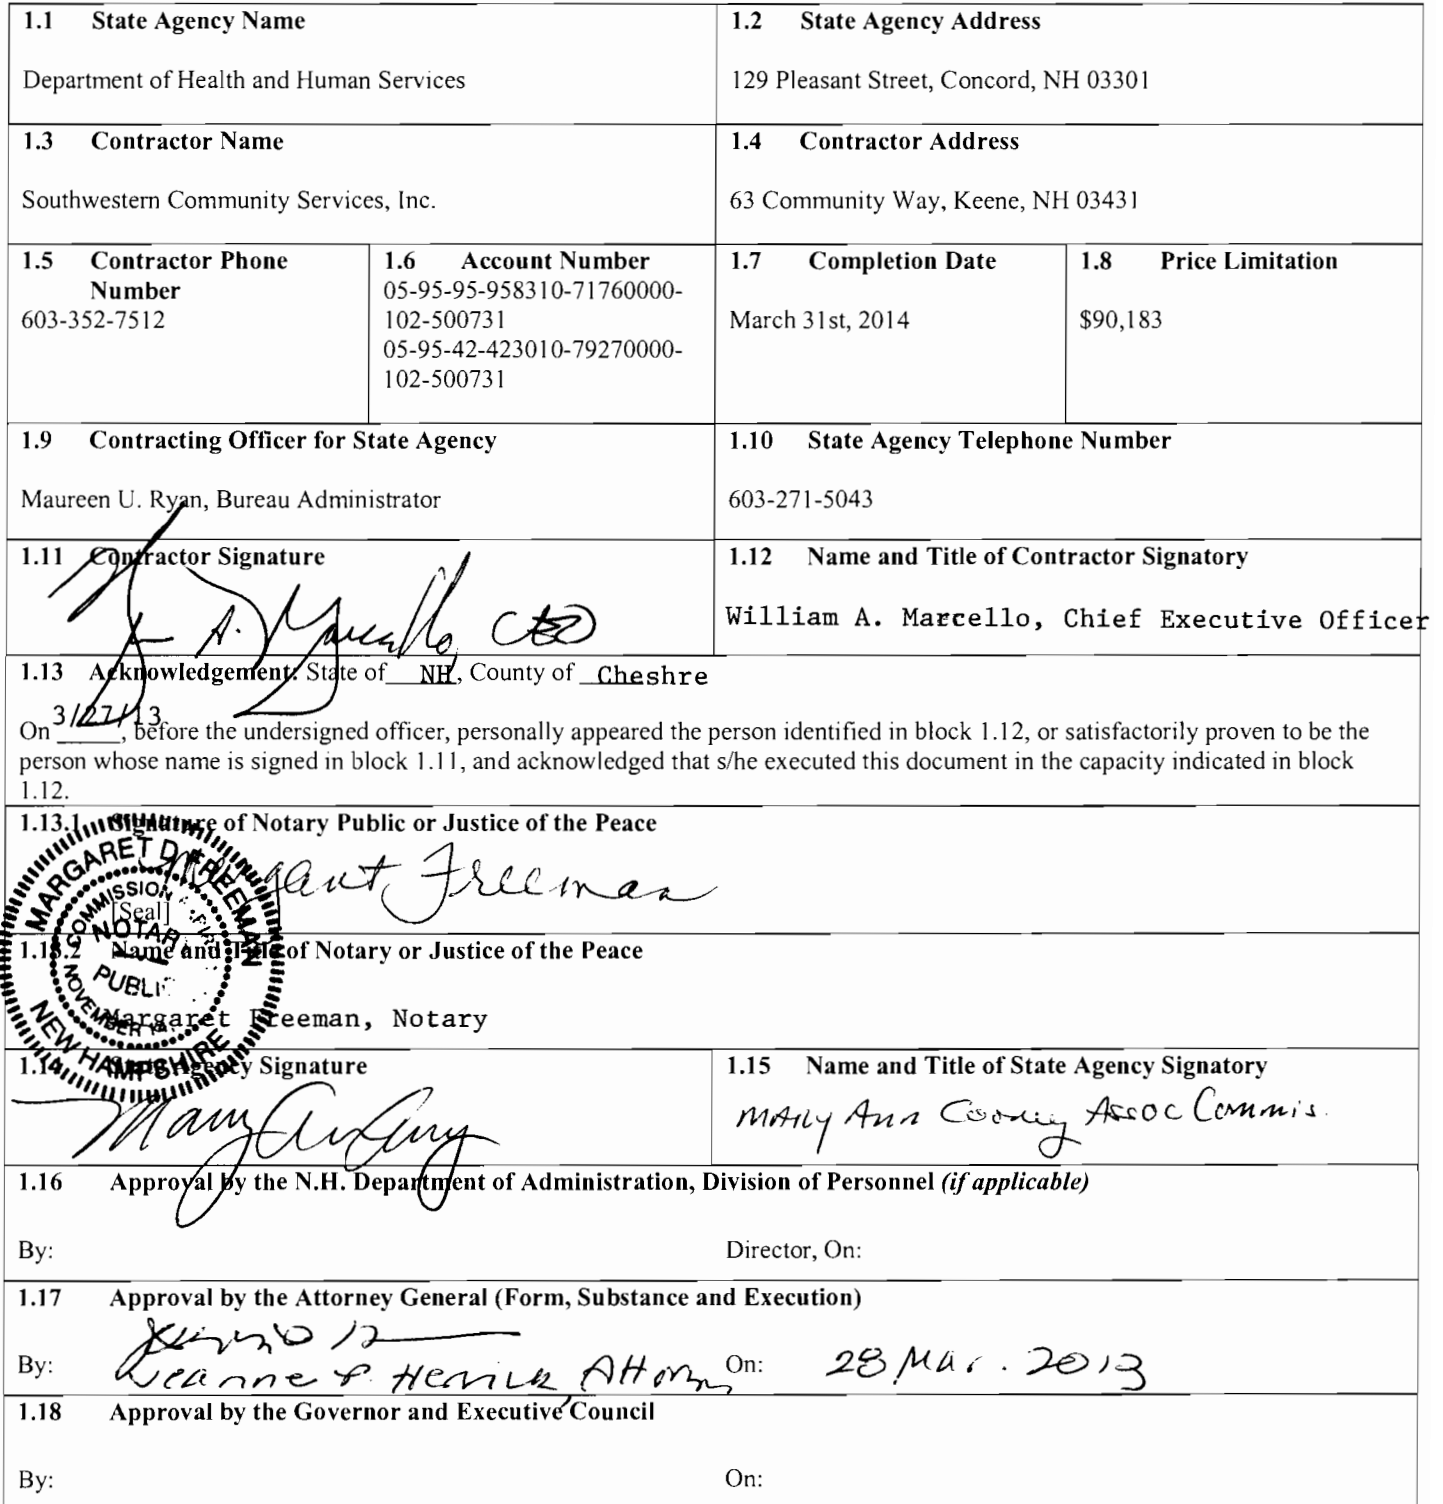 1.1 State Agency Name
Department of Health and Human Services
1.2 State Agency Address
129 Pleasant Street, Concord, NH 03301
1.3 Contractor Name
Southwestern Community Services, Inc.
1.4 Contractor Address
63 Community Way, Keene, NH 03431
1.5 Contractor Phone
Number
603-352-7512
1.6 Account Number
05-95-95-958310-71760000-
102-500731
05-95-42-423010-79270000-
102-500731
1.7 Completion Date
March 31st, 2014
1.8 Price Limitation
$90,183
1.9 Contracting Officer for State Agency
Maureen U. Ryan, Bureau Administrator
1.10 State Agency Telephone Number
603-271-5043
1.11 Contractor Signature
A. Marcello, CEO
1.12 Name and Title of Contractor Signatory
William A. Marcello, Chief Executive Officer
1.13 Acknowledgement: State of NH, County of Cheshre
On 3/27/13, before the undersigned officer, personally appeared the person identified in block 1.12, or satisfactorily proven to be the
person whose name is signed in block 1.11, and acknowledged that s/he executed this document in the capacity indicated in block
1.12.
1.13.1 Signature of Notary Public or Justice of the Peace
Margaret Freeman
[Seal]
MARGARET D FREEMAN
COMMISSION
NOTARY
PUBLIC
NOVEMBER 14,
NEW HAMPSHIRE
1.13.2 Name and Title of Notary or Justice of the Peace
Margaret Freeman, Notary
1.14 State Agency Signature
Mary
1.15 Name and Title of State Agency Signatory
Mary Ann Cooney Assoc Commis.
1.16 Approval by the N.H. Department of Administration, Division of Personnel (if applicable)
By:
Director, On:
1.17 Approval by the Attorney General (Form, Substance and Execution)
By: Jeanne P. Herrick, Attorney
On: 28 Mar. 2013
1.18 Approval by the Governor and Executive Council
By:
On: